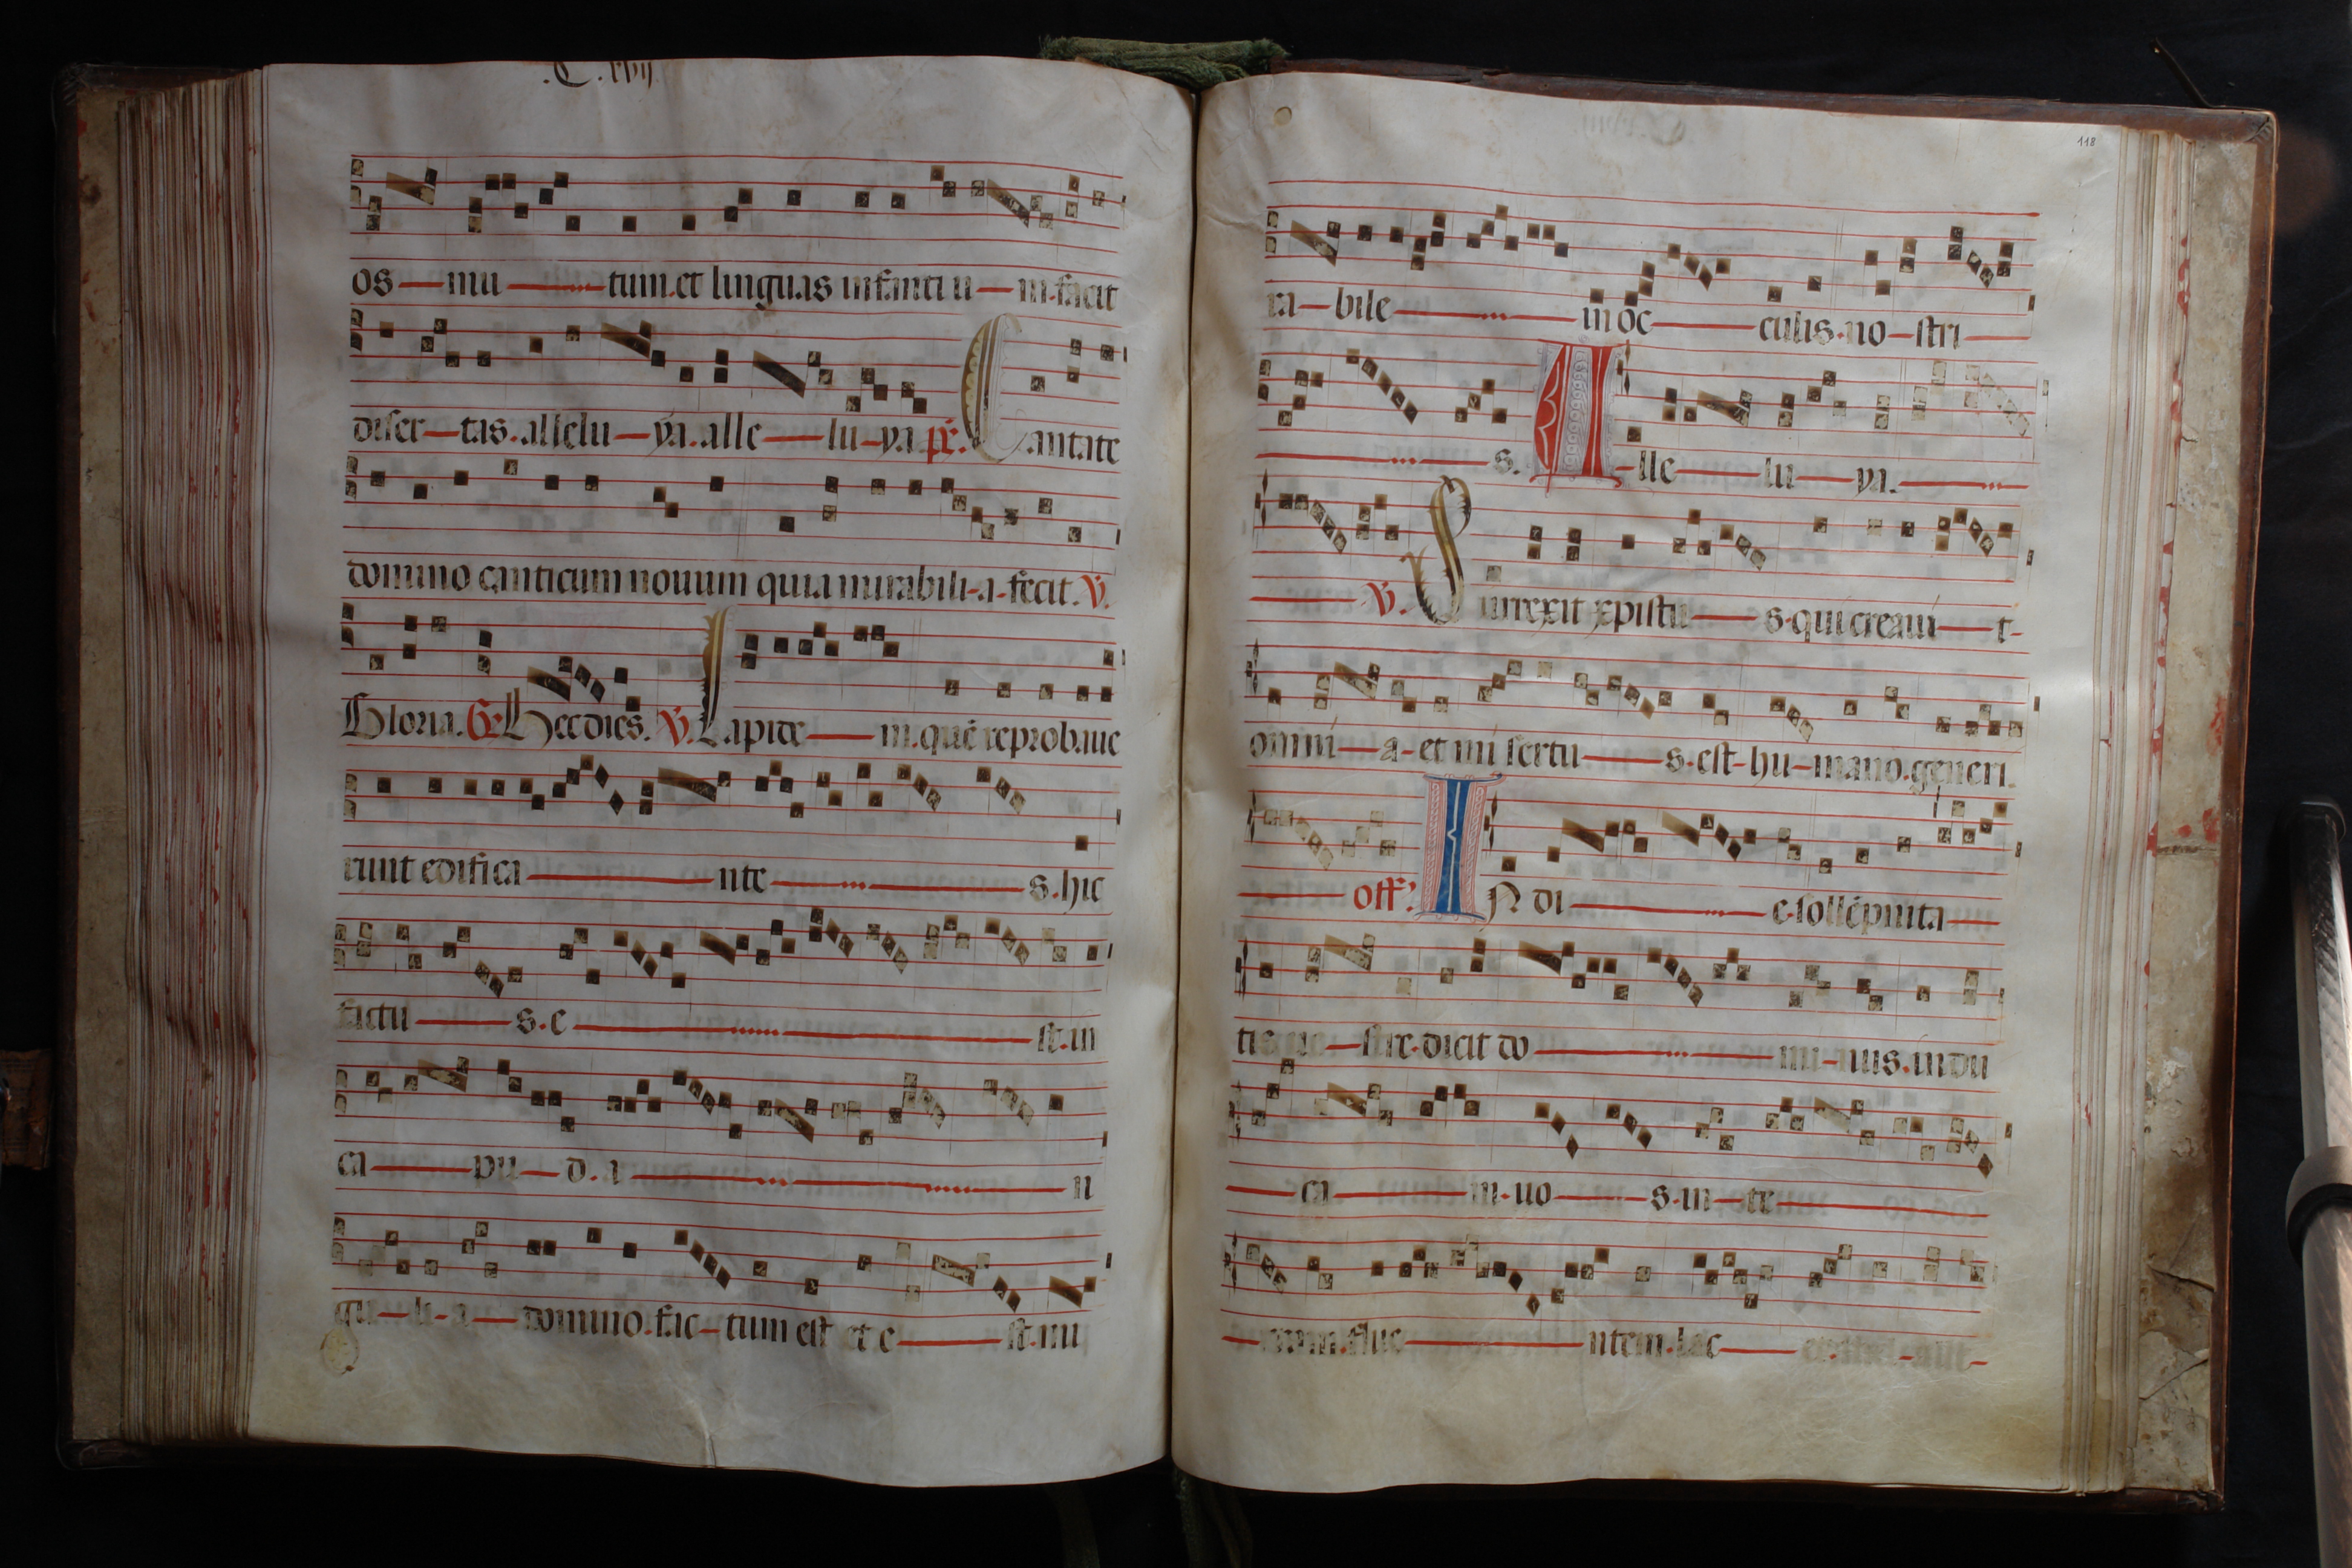 .C.xvij.
os mu tum.et linguas infantiu m.facit
diser tas.allelu ya.alle lu ya ps. Cantate
domino canticum nouum quia mirabili a fecit. V.
Gloria. Gr. Hec dies. V. Lapide m.quē reprobaue
runt edifica nte s.hic
factu s.e st.in
ca pu d.a n
gu li a domino.fac tum est et e st.mi
118
ra bile in oc culis.no stri
s. Alle lu ya.
V. Surrexit xpistu s.qui creaui t
omni a et mi sertu s.est hu mano.generi.
off. IN di e.sollēpnita
tis ue stre.dicit do mi nus.indu
ca m.uo s.in te
rram.flue ntem.lac et.mel.